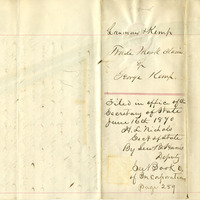 Lanman & Kemp
Trade Mark Claim
of
George Kemp.
Filed in office of the
Secretary of State
June 16th 1870
H. L. Nichols
Sec't of State
By Lew B. Harris
Deputy
Book
of Incorporations
page 289